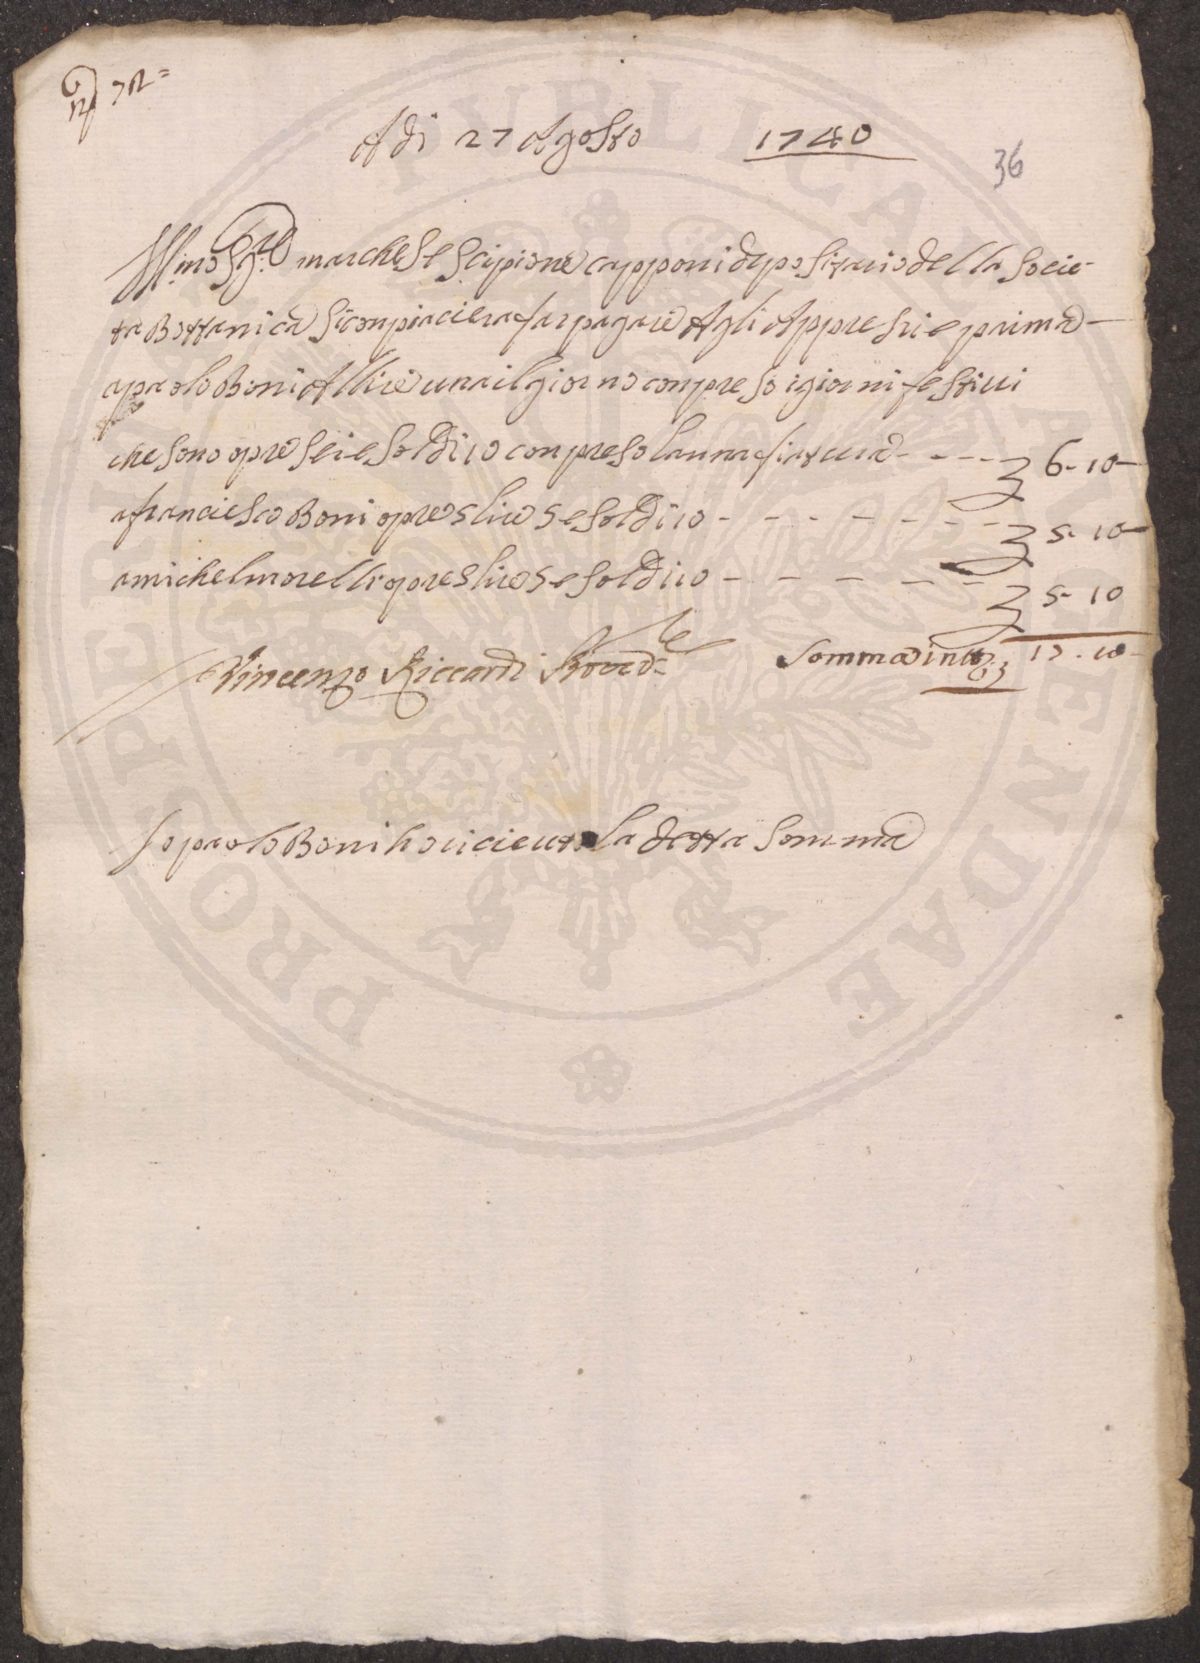 Adi 27 Agosto 1740
36
Ill.mo Sg.re marchese Scipione capponi depositario della Socie-
ta Bottanica Si conpiaciera far pagare Agli Appresti e prima
a paolo Boni A llire una il giorno conpreso i giorni festiui
che sono opre Sei e Soldi 10 conpreso launa fiatuia - - - - 6-10-
a franciesco Boni opre 5 lire 5 e Soldi 10 - - - - - - - 5-10-
a michel morelli opre 5 lire 5 e Soldi 10 - - - - - - 5-10
Vincenzo Riccardi Prove.re Somma in tt.o 17-10-
Io paolo Boni ho riceuto la detta Somma
PUBLICAE
PROSPERITATI
AUGENDAE